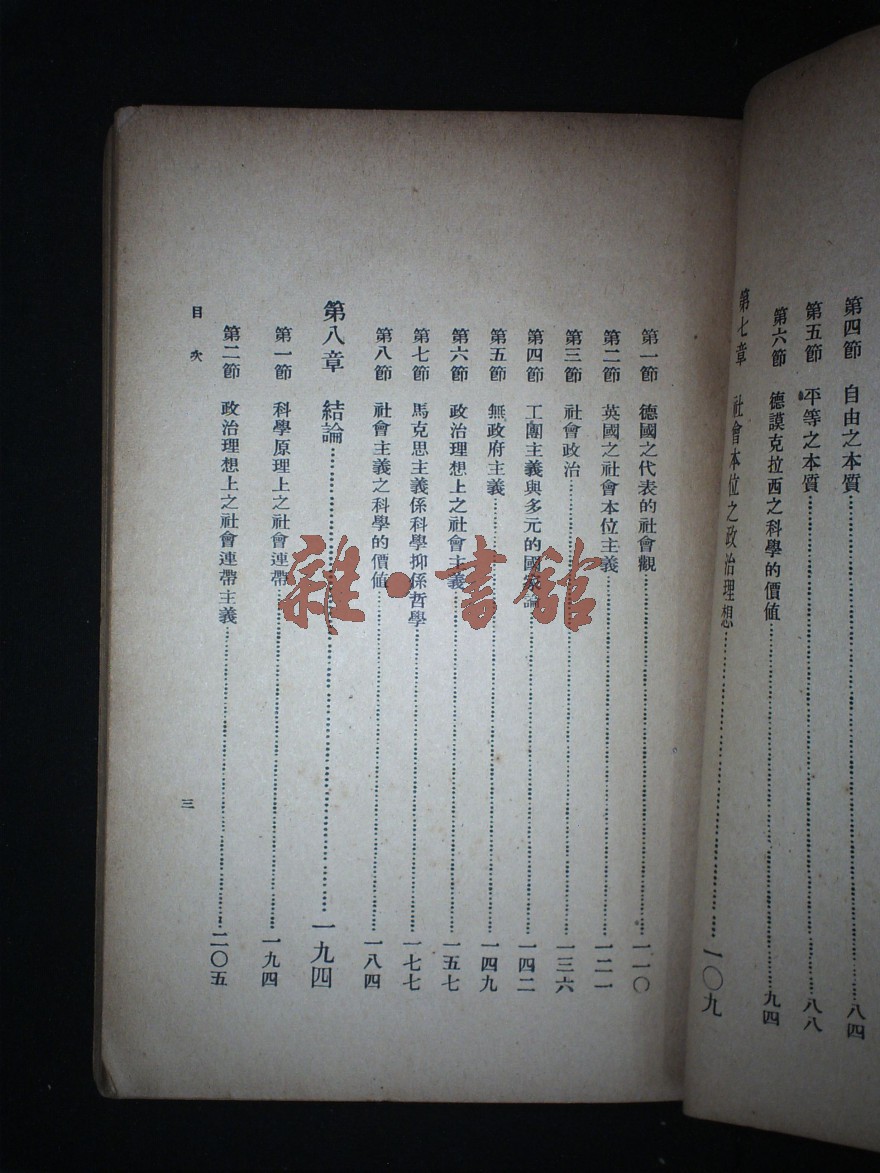 第四節　自由之本質……八四
第五節　平等之本質……八八
第六節　德謨克拉西之科學的價值……九四
第七章　社會本位之政治理想……一〇九
第一節　德國之代表的社會觀……一一〇
第二節　英國之社會本位主義……一二一
第三節　社會政治……一三六
第四節　工團主義與多元的國家論……一四二
第五節　無政府主義……一四九
第六節　政治理想上之社會主義……一五七
第七節　馬克思主義係科學抑係哲學……一七七
第八節　社會主義之科學的價值……一八四
第八章　結論……一九四
第一節　科學原理上之社會連帶……一九四
第二節　政治理想上之社會連帶主義……二〇五
目次
三
雜·書館